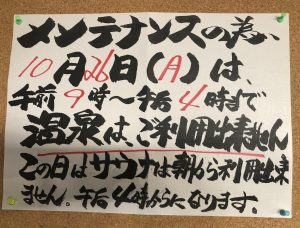 メンテナンスの為、
10月26日(月)は、
午前9時~午后4時まで
温泉は、ご利用出来ません
この日はサウナは朝から利用出来
ません。午后4時からになります。